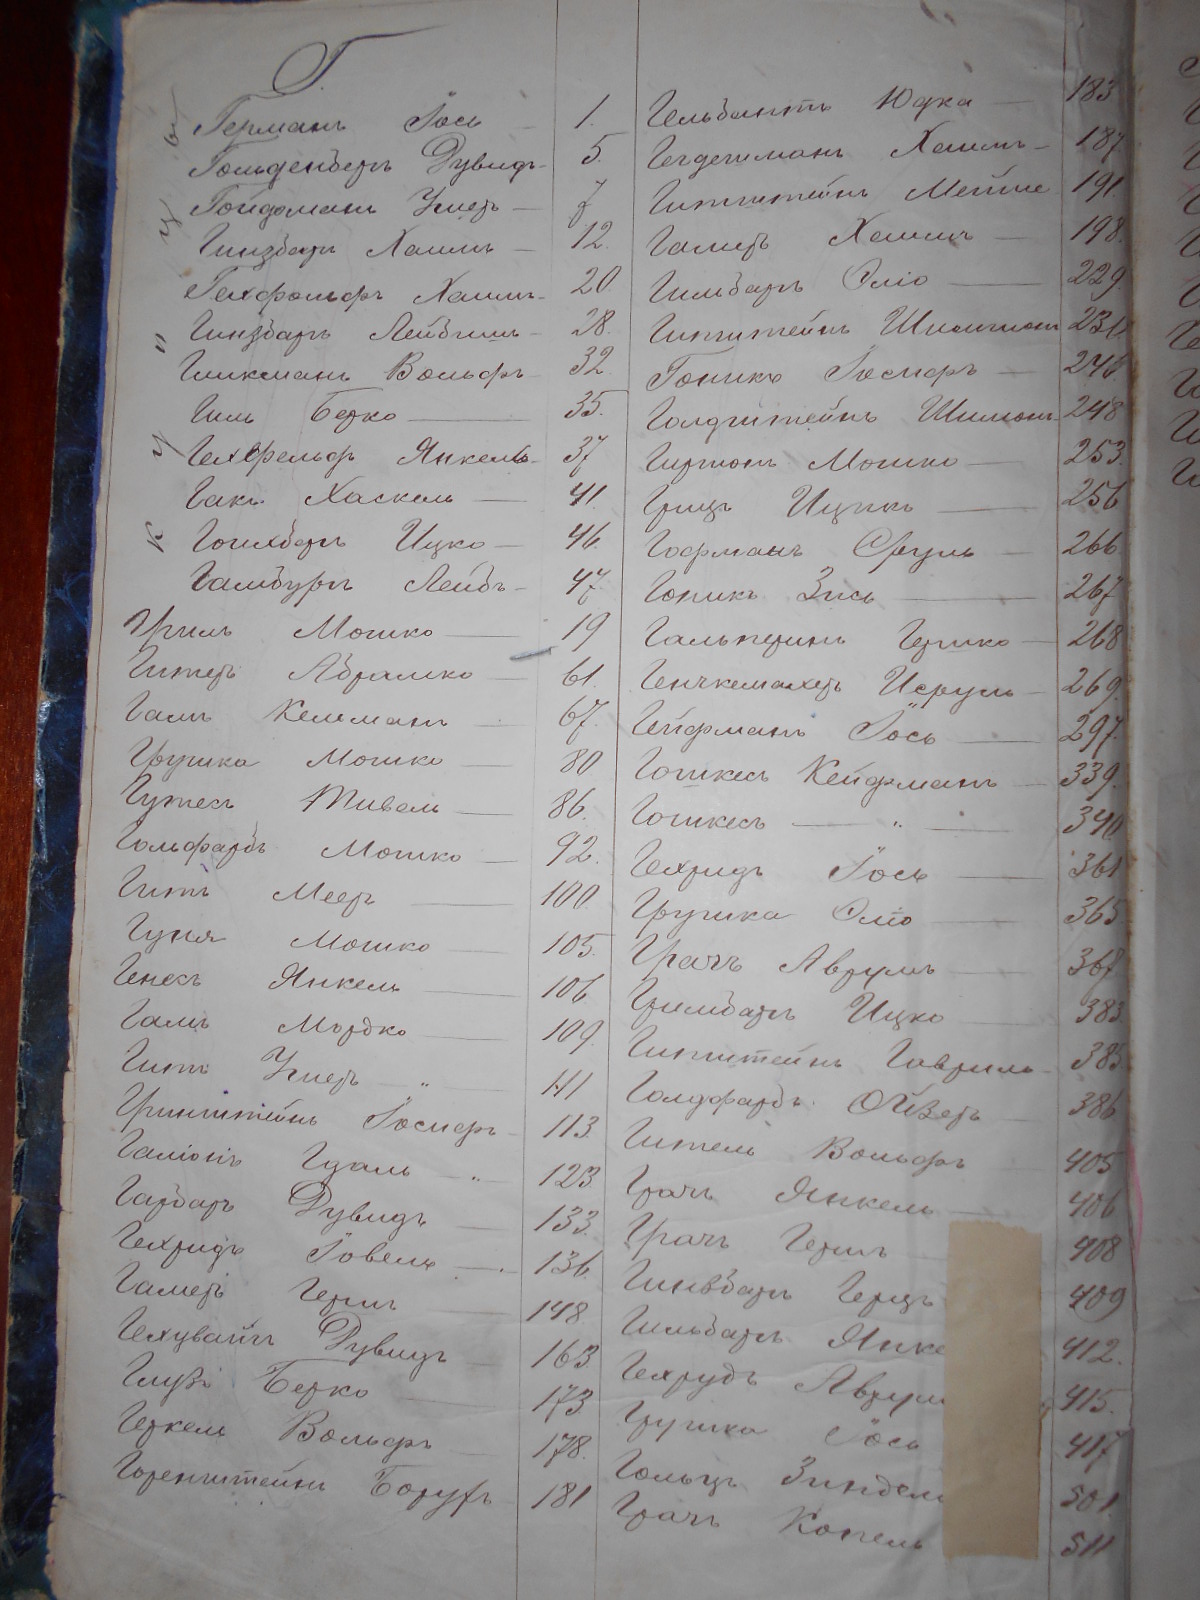 Г.
Германъ Іось — 1.
Гольденбергъ Дувидъ — 5.
Гойфманъ Ушеръ — 7
Гинзбаръ Хаимъ — 12.
Гехфольфъ Хаимъ — 20.
Гинзбаръ Лейбишъ — 28.
Гликманъ Вольфъ 32.
Гиль Берко — 35.
Гехфельдъ Янкель — 37
Гакъ Хаскель — 41.
Гойхберъ Ицко — 46.
Гамбургъ Лейбъ — 47.
Гриль Мошко — 19
Гитеръ Абрамко — 61.
Гамъ Кельманъ — 67.
Грушка Мошко — 80
Гутесъ Тивель — 86.
Гольфарбъ Мошко — 92.
Гитъ Мееръ — 100.
Гуня Мошко — 105.
Генесъ Янкель — 106
Гамъ Мордко — 109.
Гитъ Ушеръ — „ — 111
Гринштейнъ Іосифъ — 113.
Галіокъ Гдаль — „ — 123
Гарбаръ Дувидъ — 133.
Гехридъ Іовель — 136.
Гамеръ Гершъ — 148.
Дувидъ — 163
Глузъ Берко — 173.
Геркель Вольфъ — 178.
Горенштейнъ Борухъ 181
Юдка — 183
Хаимъ — 187.
Гитштейнъ Мейше 191.
Гамеръ Хаимъ — 198.
Гимбаръ Эліо — 229.
Гитштейнъ Шимшонъ 231.
Гоникъ Іосифъ — 246.
Голдштейнъ Шимонъ 248
Гиршонъ Мошко — 253.
Грицъ Ицикъ — 256
Гофманъ Сруль — 266.
Гоникъ Зись — 267
Гальперинъ Гершко — 268
Исруль — 269.
Гейфманъ Іось — 297.
Гошкесъ Кейфманъ — 339.
Гошкесъ — „ — 340
Гехридъ Іось — 361
Грушка Эліо — 365
Грачъ Аврумъ — 367
Гримбаръ Ицко — 383.
Гитштейнъ Гавриль — 385
Голдфарбъ Ойзеръ — 386
Гитель Вольфъ 405
Грачъ Янкель — 406
Грачъ Гершъ 408
Гинзбаръ Герцъ 409
Гильбаръ Янке 412.
Гехрудъ Аврум 415.
Грушка Іось 417
Гольцъ Зиндел 501.
Грачъ Копель 511